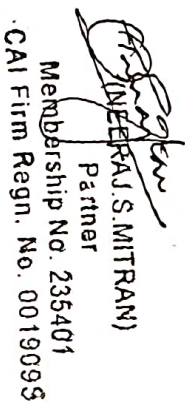 (NEERAJ.S.MITRAN)
Partner
Membership No. 235401
.CAI Firm Regn. No. 001909S